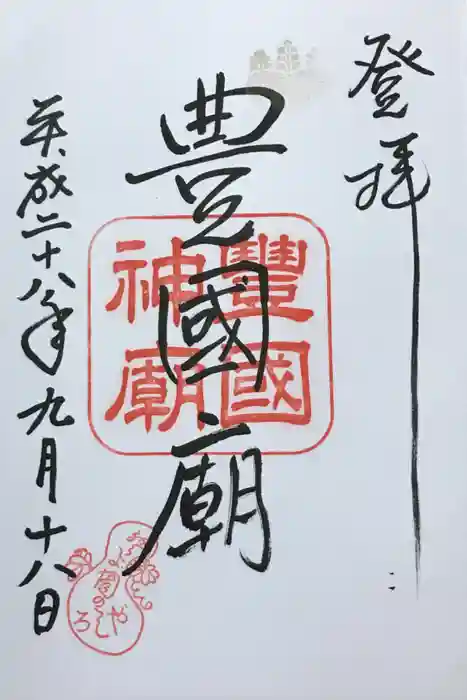 登拝
豊國廟
豐國神廟
平成二十八年九月十八日